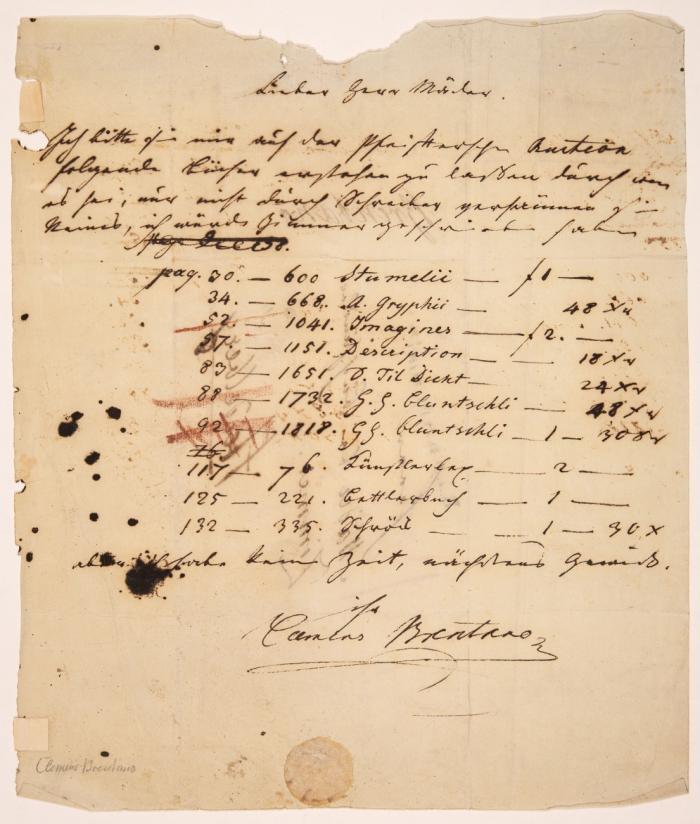 Lieber Herr Mäder.
Ich bitte Sie mir auf der Pfeisterschen Auction
folgende Bücher erstehen zu lassen durch wen
es sei, nur nicht durch Schreiber versäumen Sie
keines, ich würde Zimmer geschrieben haben
pag. 30. — 600 Stumelii — f 1 —
34. — 668. A. Gryphii — 48 Xr
52. — 1041. Imagines — f 2. —
57. — 1151. Description — 18 Xr
83 — 1651. O. Til Dicht — 24 Xr
88 — 1732. G. G. Bluntschli — 48 Xr
92 — 1818. G G. Bluntschli — 1 — 30 Xr
76.
117 — 76. Künstlerlex — 2 —
125 — 221. Bettlerbuch — 1 —
132 — 335. Schröd — 1 — 30 X
aber ich habe keine Zeit, nächstens Gewiß.
ihr
Clemens Brentano
Clemens Brentano